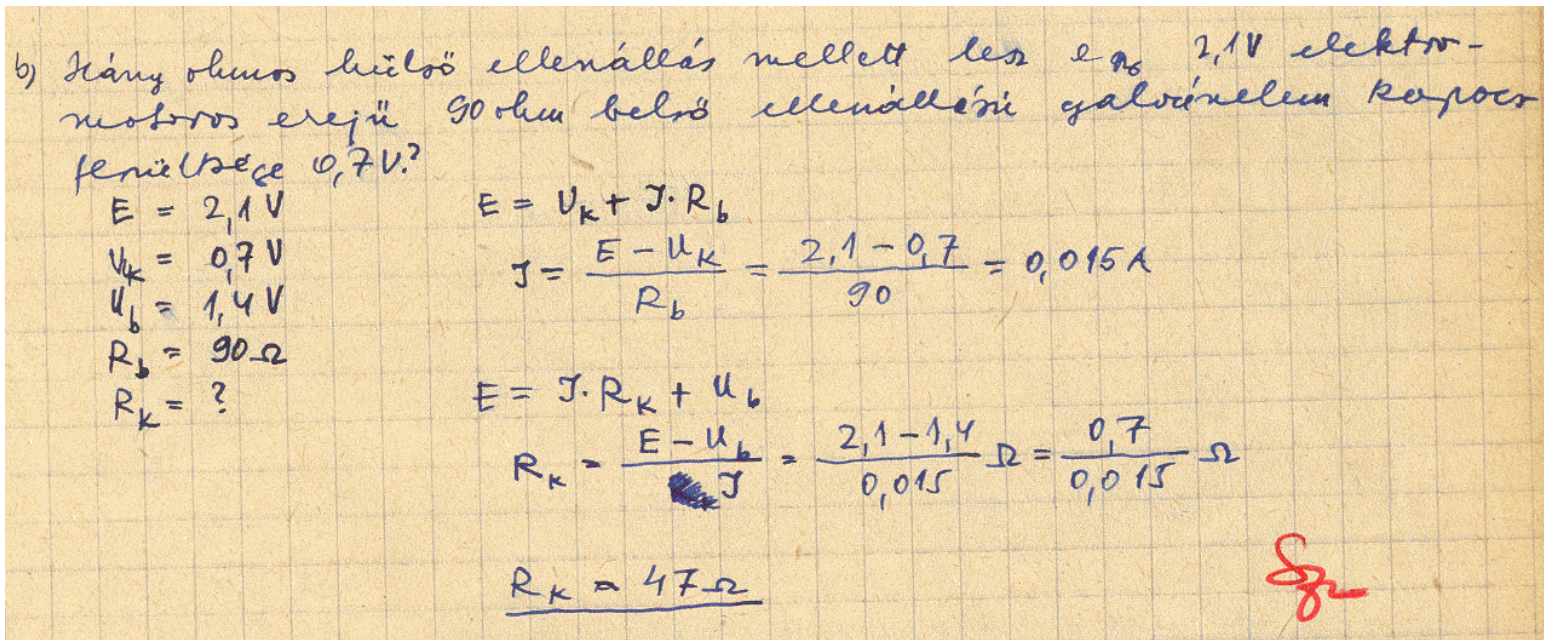 b) Hány ohmos külső ellenállás mellett lesz egy 2,1V elektro-
motoros erejű 90 ohm belső ellenállású galvánelem kapocs
feszültsége 0,7V.?
E = 2,1 V
U_k = 0,7 V
U_b = 1,4 V
R_b = 90 Ω
R_k = ?
E = U_k + J · R_b
J = (E - U_k) / R_b = (2,1 - 0,7) / 90 = 0,015 A
E = J · R_k + U_b
R_k = (E - U_b) / J = (2,1 - 1,4) / 0,015 Ω = 0,7 / 0,015 Ω
R_k = 47 Ω